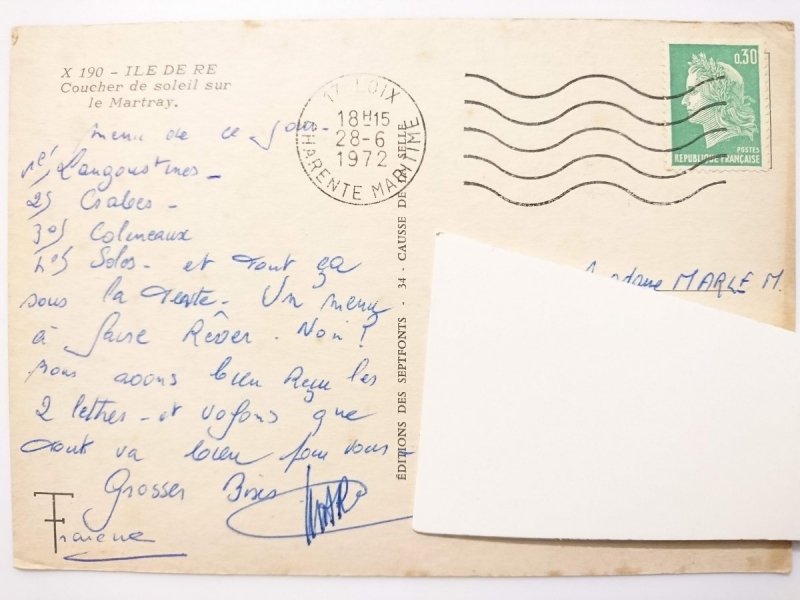 X 190 - ILE DE RE
Coucher de soleil sur
le Martray.
17 LOIX
18H15
28-6
1972
CHARENTE MARITIME
0,30
POSTES
REPUBLIQUE FRANÇAISE
menu de ce jour -
1er/ Langoustines -
2e/ Crabes -
3e/ Colineaux
4e/ Soles - et tout ça
sous la tente - Un menu
à faire Rêver. Non ?
Nous avons bien Reçu les
2 lettres - et voyons que
tout va bien pour vous -
Grosses Bises
ÉDITIONS DES SEPTFONTS - 34 - CAUSSE DE LA SELLE
Madame MARLE M.